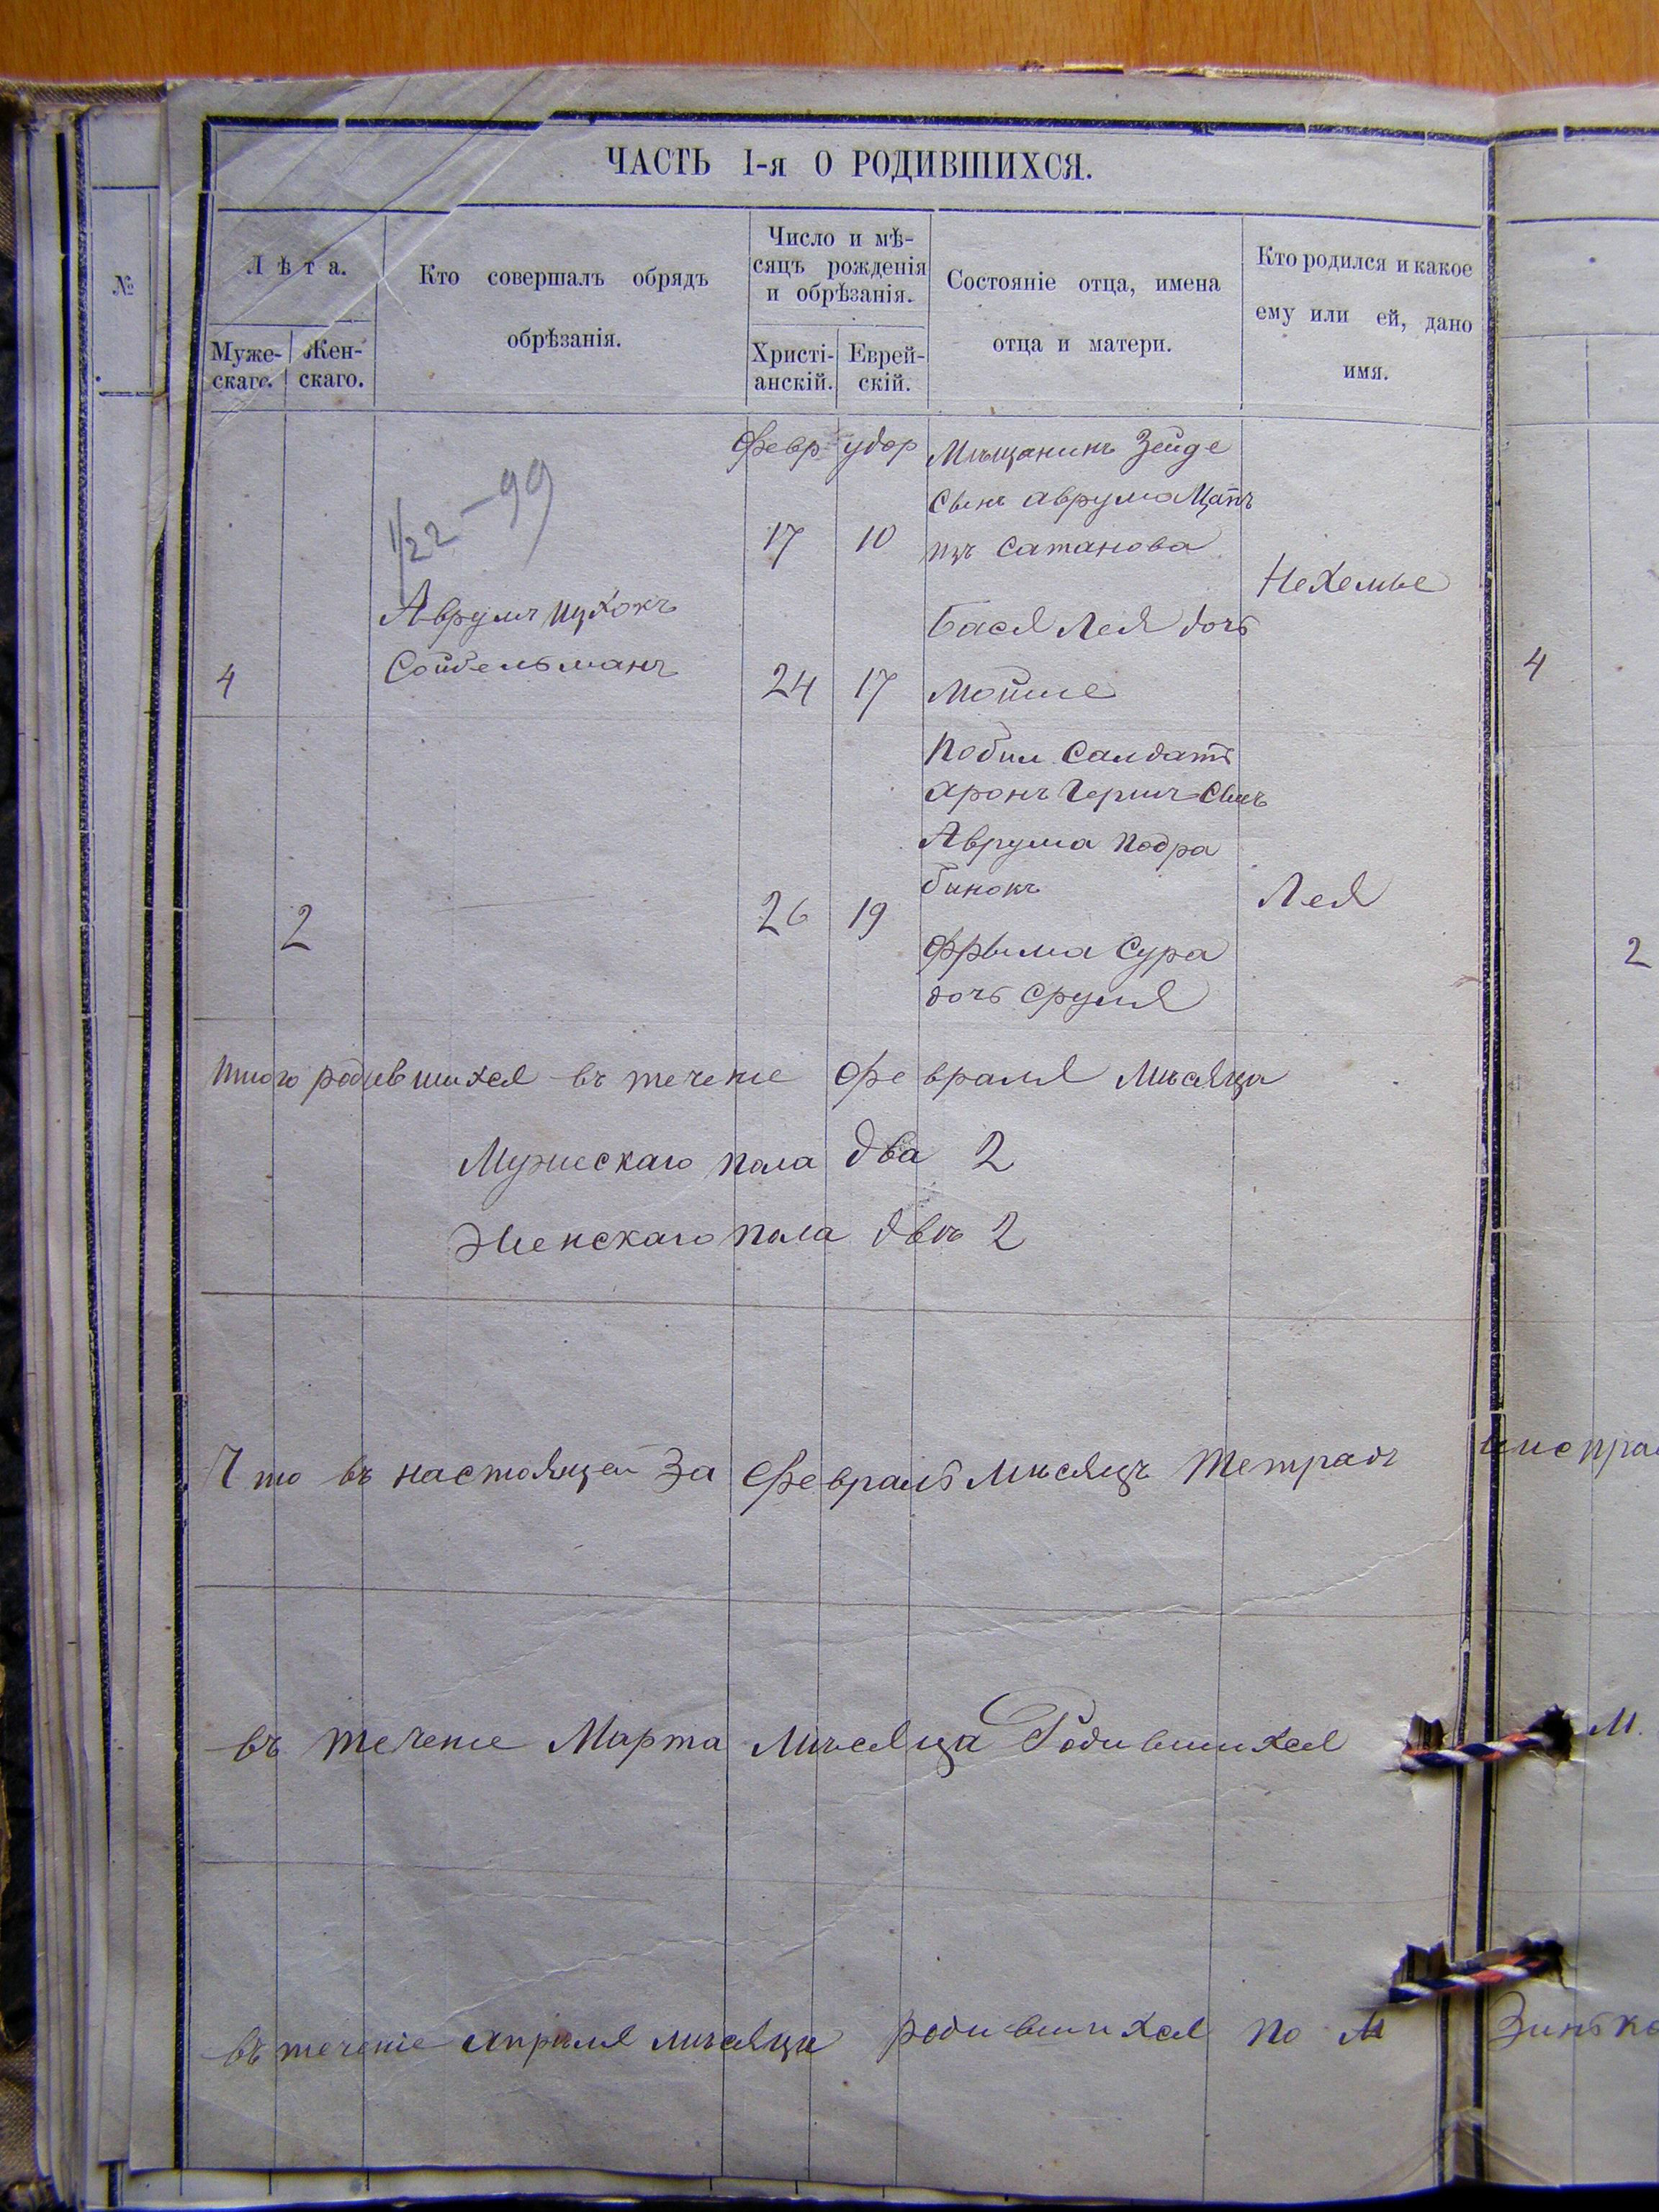 ЧАСТЬ I-я О РОДИВШИХСЯ.
№
Лѣта.
Муже-
скаго.
Жен-
скаго.
Кто совершалъ обрядъ
обрѣзанія.
Число и мѣ-
сяцъ рожденія
и обрѣзанія.
Христі-
анскій.
Еврей-
скій.
Состояніе отца, имена
отца и матери.
Кто родился и какое
ему или ей, дано
имя.
Февр
удор
Мѣщанинъ Зейде
сынъ аврума Цапъ
изъ Сатанова
17 10
1/22-99
Нехемье
Аврумъ Ицхокъ
Бася Лея дочь
Сойбельманъ
4 24 17 Мойше 4
Солдатъ
Аронъ Гершъ сынъ
Аврума Подра
бинокъ
2 26 19 Лея
Фрыма Сура 2
дочь Сруля
Итого родившихся въ течение Февраля мѣсяца
Мужескаго пола два 2
Женскаго пола двѣ 2
Что въ настоящей за Февраль мѣсяцъ тетрадъ
въ течение Марта мѣсяца Родившихся М.
въ течение апрѣля мѣсяца родившихся по М Зинько